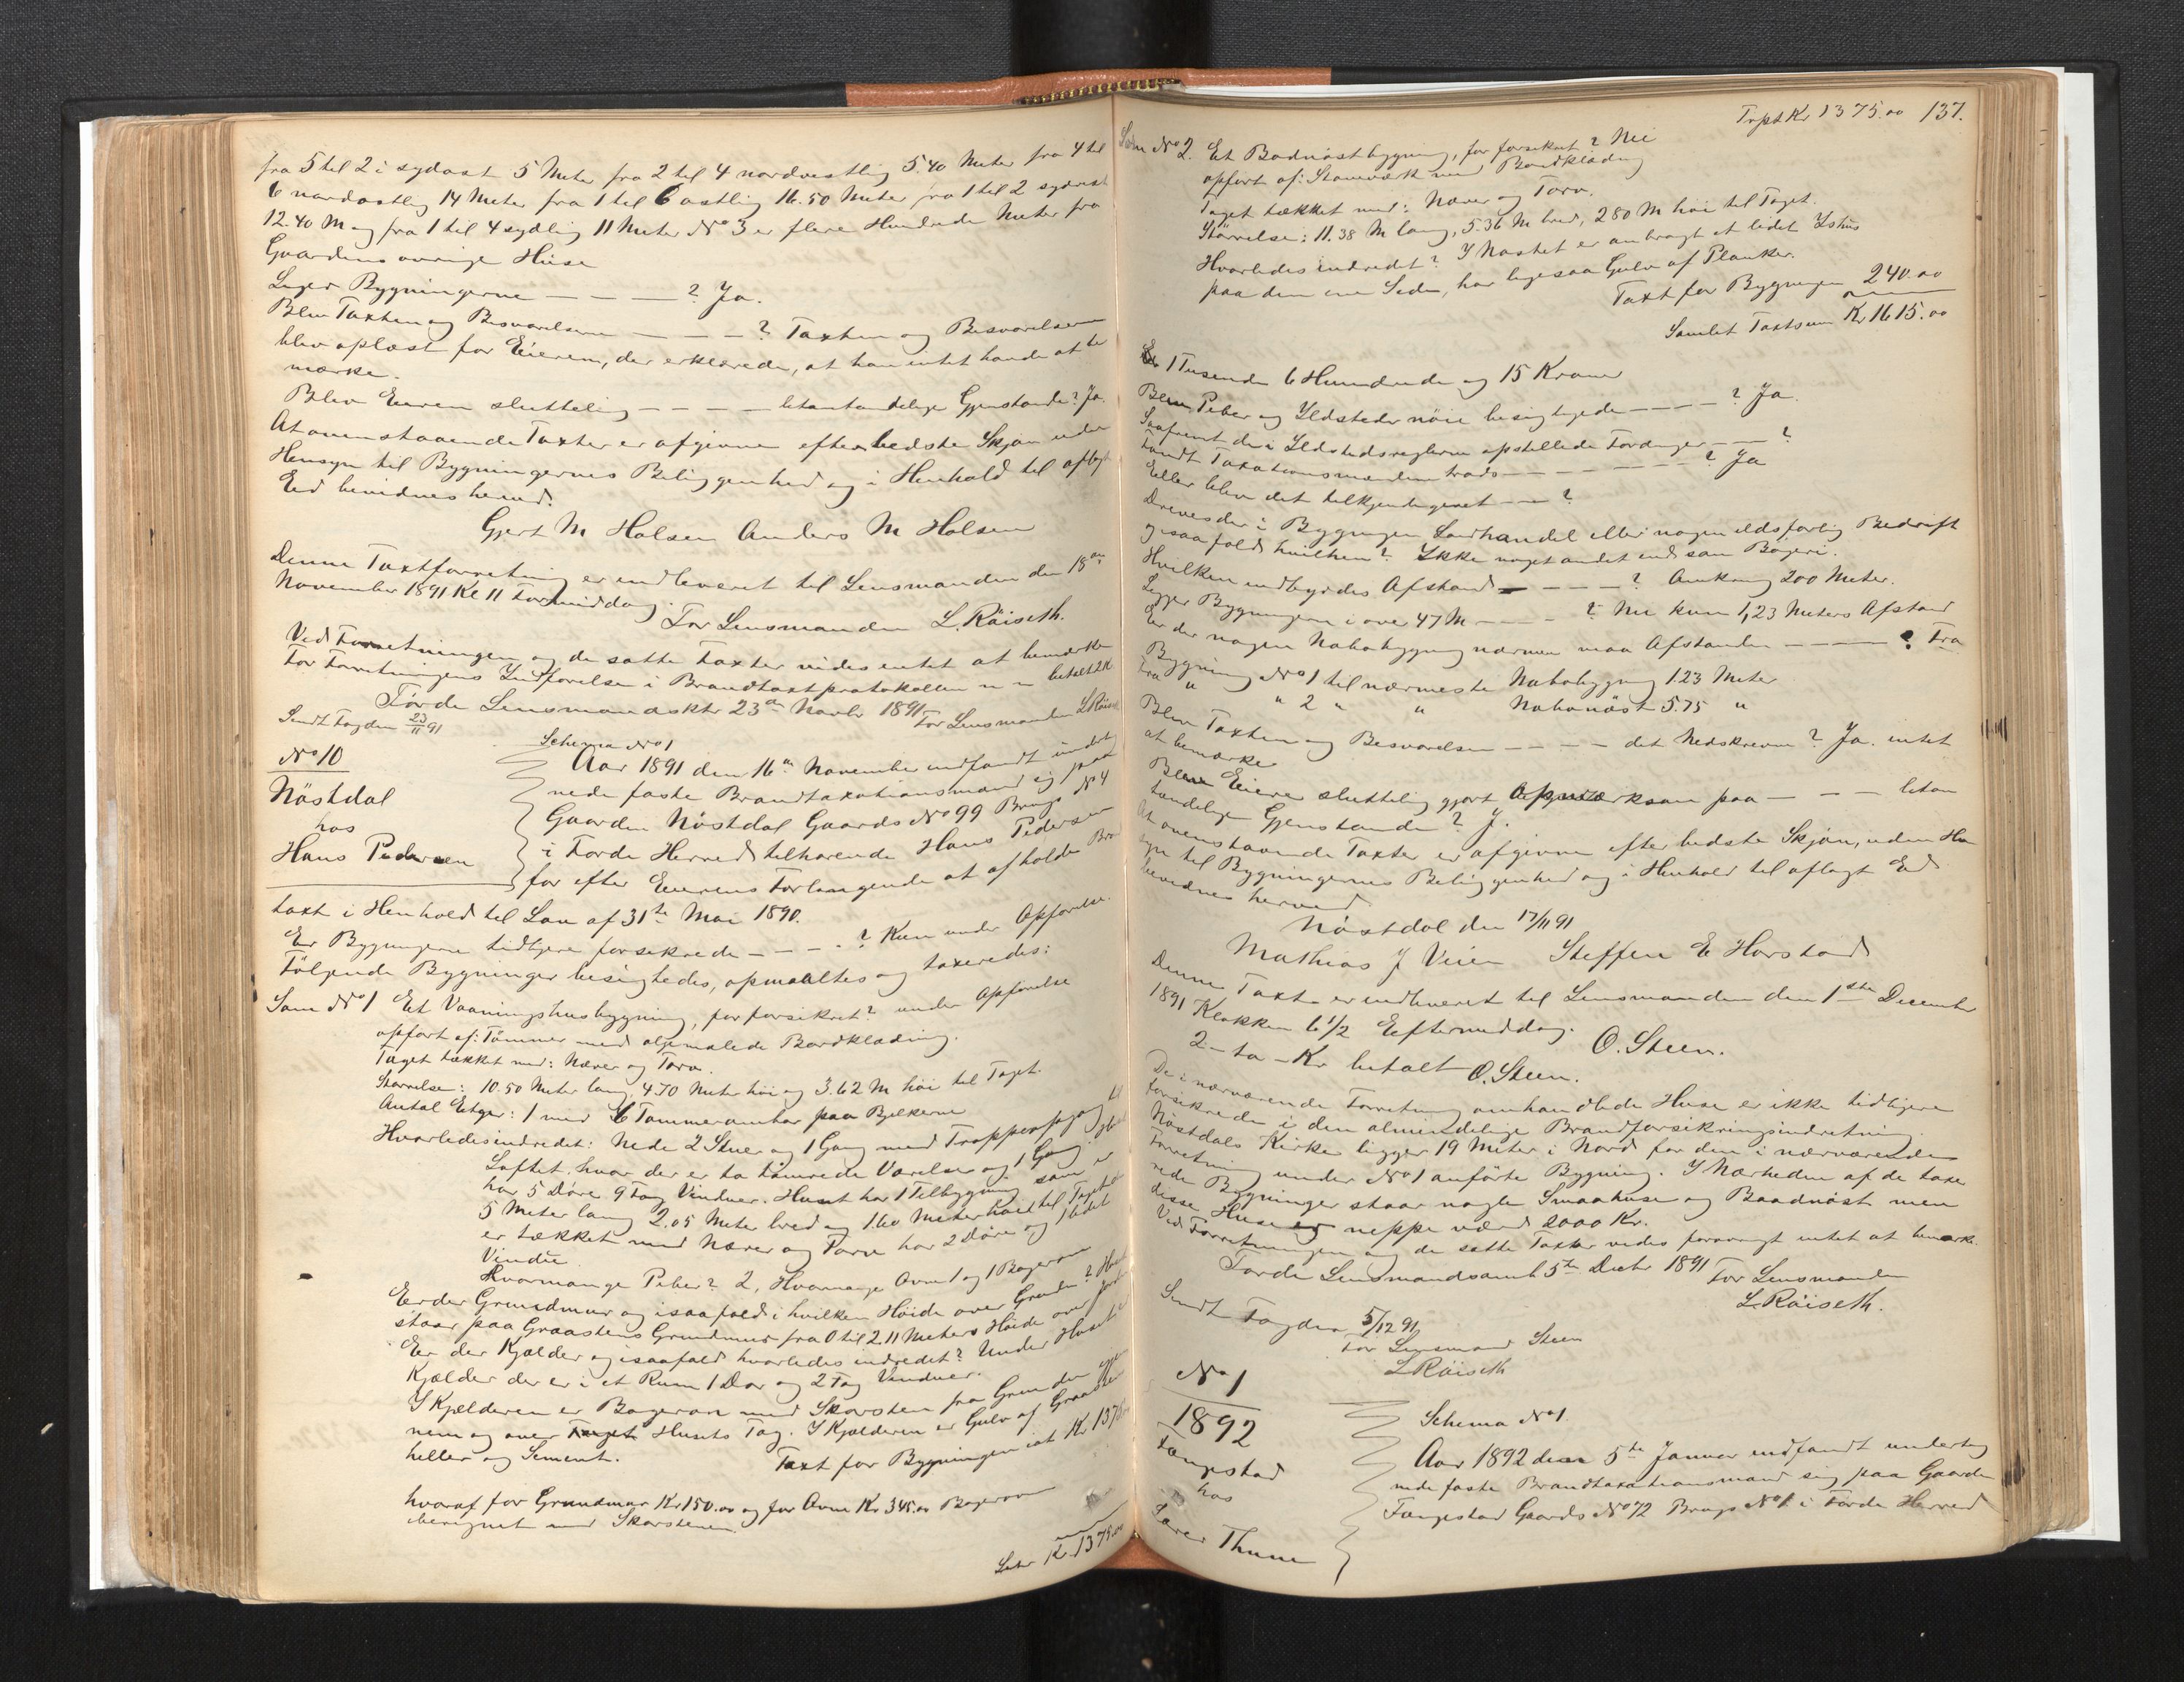 fra 5 til 2 i sydost 5 Meter fra 2 til 4 nordvestlig 5.40 Meter fra 4 til
6 nordostlig 14 Meter fra 1 til 6 ostlig 16.50 Meter fra 1 til 2 sydvest
12.40 M og fra 1 til 4 sydlig 11 Meter No 3 er flere Hundrede Meter fra
Gaardens ovrige Huse
Ligger Bygningerne — — — ? Ja.
Blev Taxten og Besvarelserne — — — ? Taxten og Besvarelserne
blev oplæst for Eieren, der erklærede, at han intet havde at be
mærke.
Blev Eieren sluttelig — — — — letantændelige Gjenstande? Ja.
At ovenstaaende Taxter er afgivne efter bedste Skjøn uden
Hensyn til Bygningernes Beliggenhed og i Henhold til aflagt
Ed bevidnes herved.
Gjert M Halsen Anders M Halsen
Denne Taxtforretning er indleveret til Lensmanden den 18de
November 1891 Kl 11 Formiddag.
For Lensmanden L. Röiseth.
Ved Forretningen og de satte Taxter vides intet at bemærke
For Forretningens Indførelse i Brandtaxtprotokollen er betalt 2 K
Førde Lensmandsktr 23de Novbr 1891
For Lensmanden L Röiseth
Sendt Fogden 23/11 91
No 10
Nöstdal
hos
Hans Pedersen
Schema No 1
Aar 1891 den 16de November indfandt underteg
nede faste Brandtaxationsmænd sig paa
Gaarden Nöstdal Gaards No 99 Brugs No 4
i Førde Herred tilhørende Hans Pedersen
for efter Eierens Forlangende at afholde Brand
taxt i Henhold til Lov af 31te Mai 1890.
Er Bygningerne tidligere forsikrede — — — ? Kun under Opførelse.
Følgende Bygninger besigtedes, opmaaltes og taxeredes:
Som No 1 Et Vaaningshusbygning, før forsikret? under Opførelse
opført af: Tømmer med oljemalede Bordklædning.
Taget tækket med: Næver og Torv.
Størrelse: 10.50 Meter lang, 4.70 Meter höi og 3.62 M höi til Taget.
Antal Etger: 1 med 6 Tømmeromhar paa Bjelkerne
Hvorledes indredet: Nede 2 Stuer og 1 Gang med Trappeopgang til
Loftet, hvor der er to tømrede Værelser og 1 Gang
har 5 Döre 9 Fag Vinduer. Huset har 1 Tilbygning som er
5 Meter lang 2.05 Meter bred og 1.60 Meter höi til Taget
er tækket med Næver og Torv har 2 Döre og 1 lidet
Vindu
Hvormange Piber? 2, Hvormange Ovne 1 og 1 Bagerovn
Er der Grundmur og isaafald i hvilken Höide over Grunden? Huset
staar paa Graastens Grundmur fra 0 til 2.11 Meters Höide over Jorden
Er der Kjælder og isaafald hvorledes indredet? Under Huset
Kjælder der er i et Rum 1 Dør og 2 Fag Vinduer.
I Kjælderen er Bagerovn med Skorsten fra Grunden gjen
nem og over Huset Husets Tag. I Kjælderen er Gulv af Graasten
heller og Sement.
Taxt for Bygningen ialt Kr 1375.00
hvoraf for Grundmur Kr 150.00 og for Ovne Kr 345.00 Bagerovn
iberegnet med Skorstenen.
Latr Kr 1375.00
Trpt Kr 1375.00 137.
Som No 2. Et Bodnöstbygning, før forsikret? Nei
opført af: Stavværk med Bordklædning
Taget tækket med: Næver og Torv.
Störrelse: 11.38 M lang, 5.36 M bred, 2.80 M höi til Taget.
Hvorledes indredet? I Nøstet er anbragt et lidet Ishus
paa den ene Side, har ligesaa Gulv af Planker.
Taxt for Bygningen 240.00
Samlet Taxtsum Kr 1615.00
Er 1 Tusende 6 Hundrede og 15 Kroner
Blev Piber og Ildsteder nöie besigtigede — — — ? Ja.
Saafremt de i Ildstedsreglerne opstillede Fordringer — — ?
Fandt Taxationsmændene trods — — — — — ? Ja
Eller blev det tilkjendegivet — — ?
Dreves der i Bygningen Landhandel eller nogen ildsfarlig Bedrift
og isaafald hvilken? Ikke noget andet end som Bageri.
Hvilken indbyrdes Afstand — — — ? Omkring 200 Meter.
Ligger Bygningerne i over 47 M — — — ? Nei kun 1,23 Meters Afstand
Er der nogen Nabobygning nærmere end Afstanden — — — ? Fra
Bygning No 1 til nærmeste Nabobygning 1.23 Meter
fra " " 2 " " Nabonöst 5.75 "
Blev Taxten og Besvarelsen — — — — det Nedskrevne? Ja. intet
at bemærke
Blev Eieren sluttelig gjort Opmærksom paa — — — letan
tændelige Gjenstande? J.
At ovenstaaende Taxter er afgivne efter bedste Skjøn, uden Hen
syn til Bygningernes Beliggenhed og i Henhold til aflagt Ed
bevidnes herved
Nöstdal den 17/11 91
Mathias J Veien Steffen E Horstad
Denne Taxt er indleveret til Lensmanden den 1ste December
1891 Klokken 6 1/2 Eftermiddag.
O. Steen.
2 - to - Kr betalt O. Steen.
De i nærværende Forretning omhandlede Huse er ikke tidligere
forsikrede i den almindelige Brandforsikringsindretning.
Nöstdals Kirke ligger 19 Meter i Nord for den i nærværende
Forretning under No 1 anførte Bygning. I Nærheden af de taxe
rede Bygninger staar nogle Smaahuse og Baadnöst men
disse Huse er neppe værd 2000 Kr.
Ved Forretningen og de satte Taxter vides forøvrigt intet at bemærke.
Førde Lensmandsamt 5te Decbr 1891
For Lensmanden
L. Röiseth.
Sendt Fogden 5/12 91
For Lensmand Steen
L Röiseth
No 1
1892
Fængestad
hos
Thune
Schema No 1.
Aar 1892 den 5te Januar indfandt underteg
nede faste Brandtaxationsmænd sig paa Gaarden
Fængestad Gaards No 72 Brugs No 1 i Førde Herred